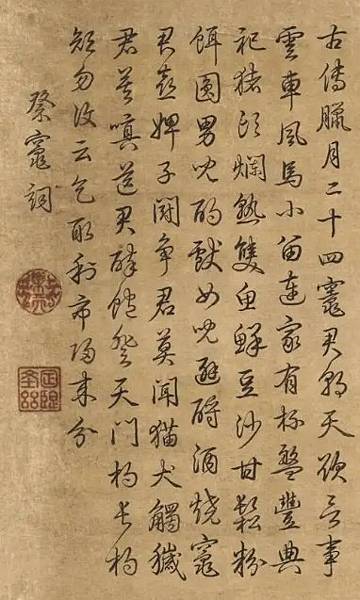 古傳臘月二十四竈君朝天欲言事
雲車風馬小留連家有杯盤豐典
祀猪頭爛熟雙魚鮮豆沙甘鬆粉
餌圓男兒酌獻女兒避酹酒燒竈
君喜婢子鬪爭君莫聞猫犬觸穢
君莫嗔送君醉飽登天門杓長杓
短勿復云乞取利市歸來分
祭竈詞